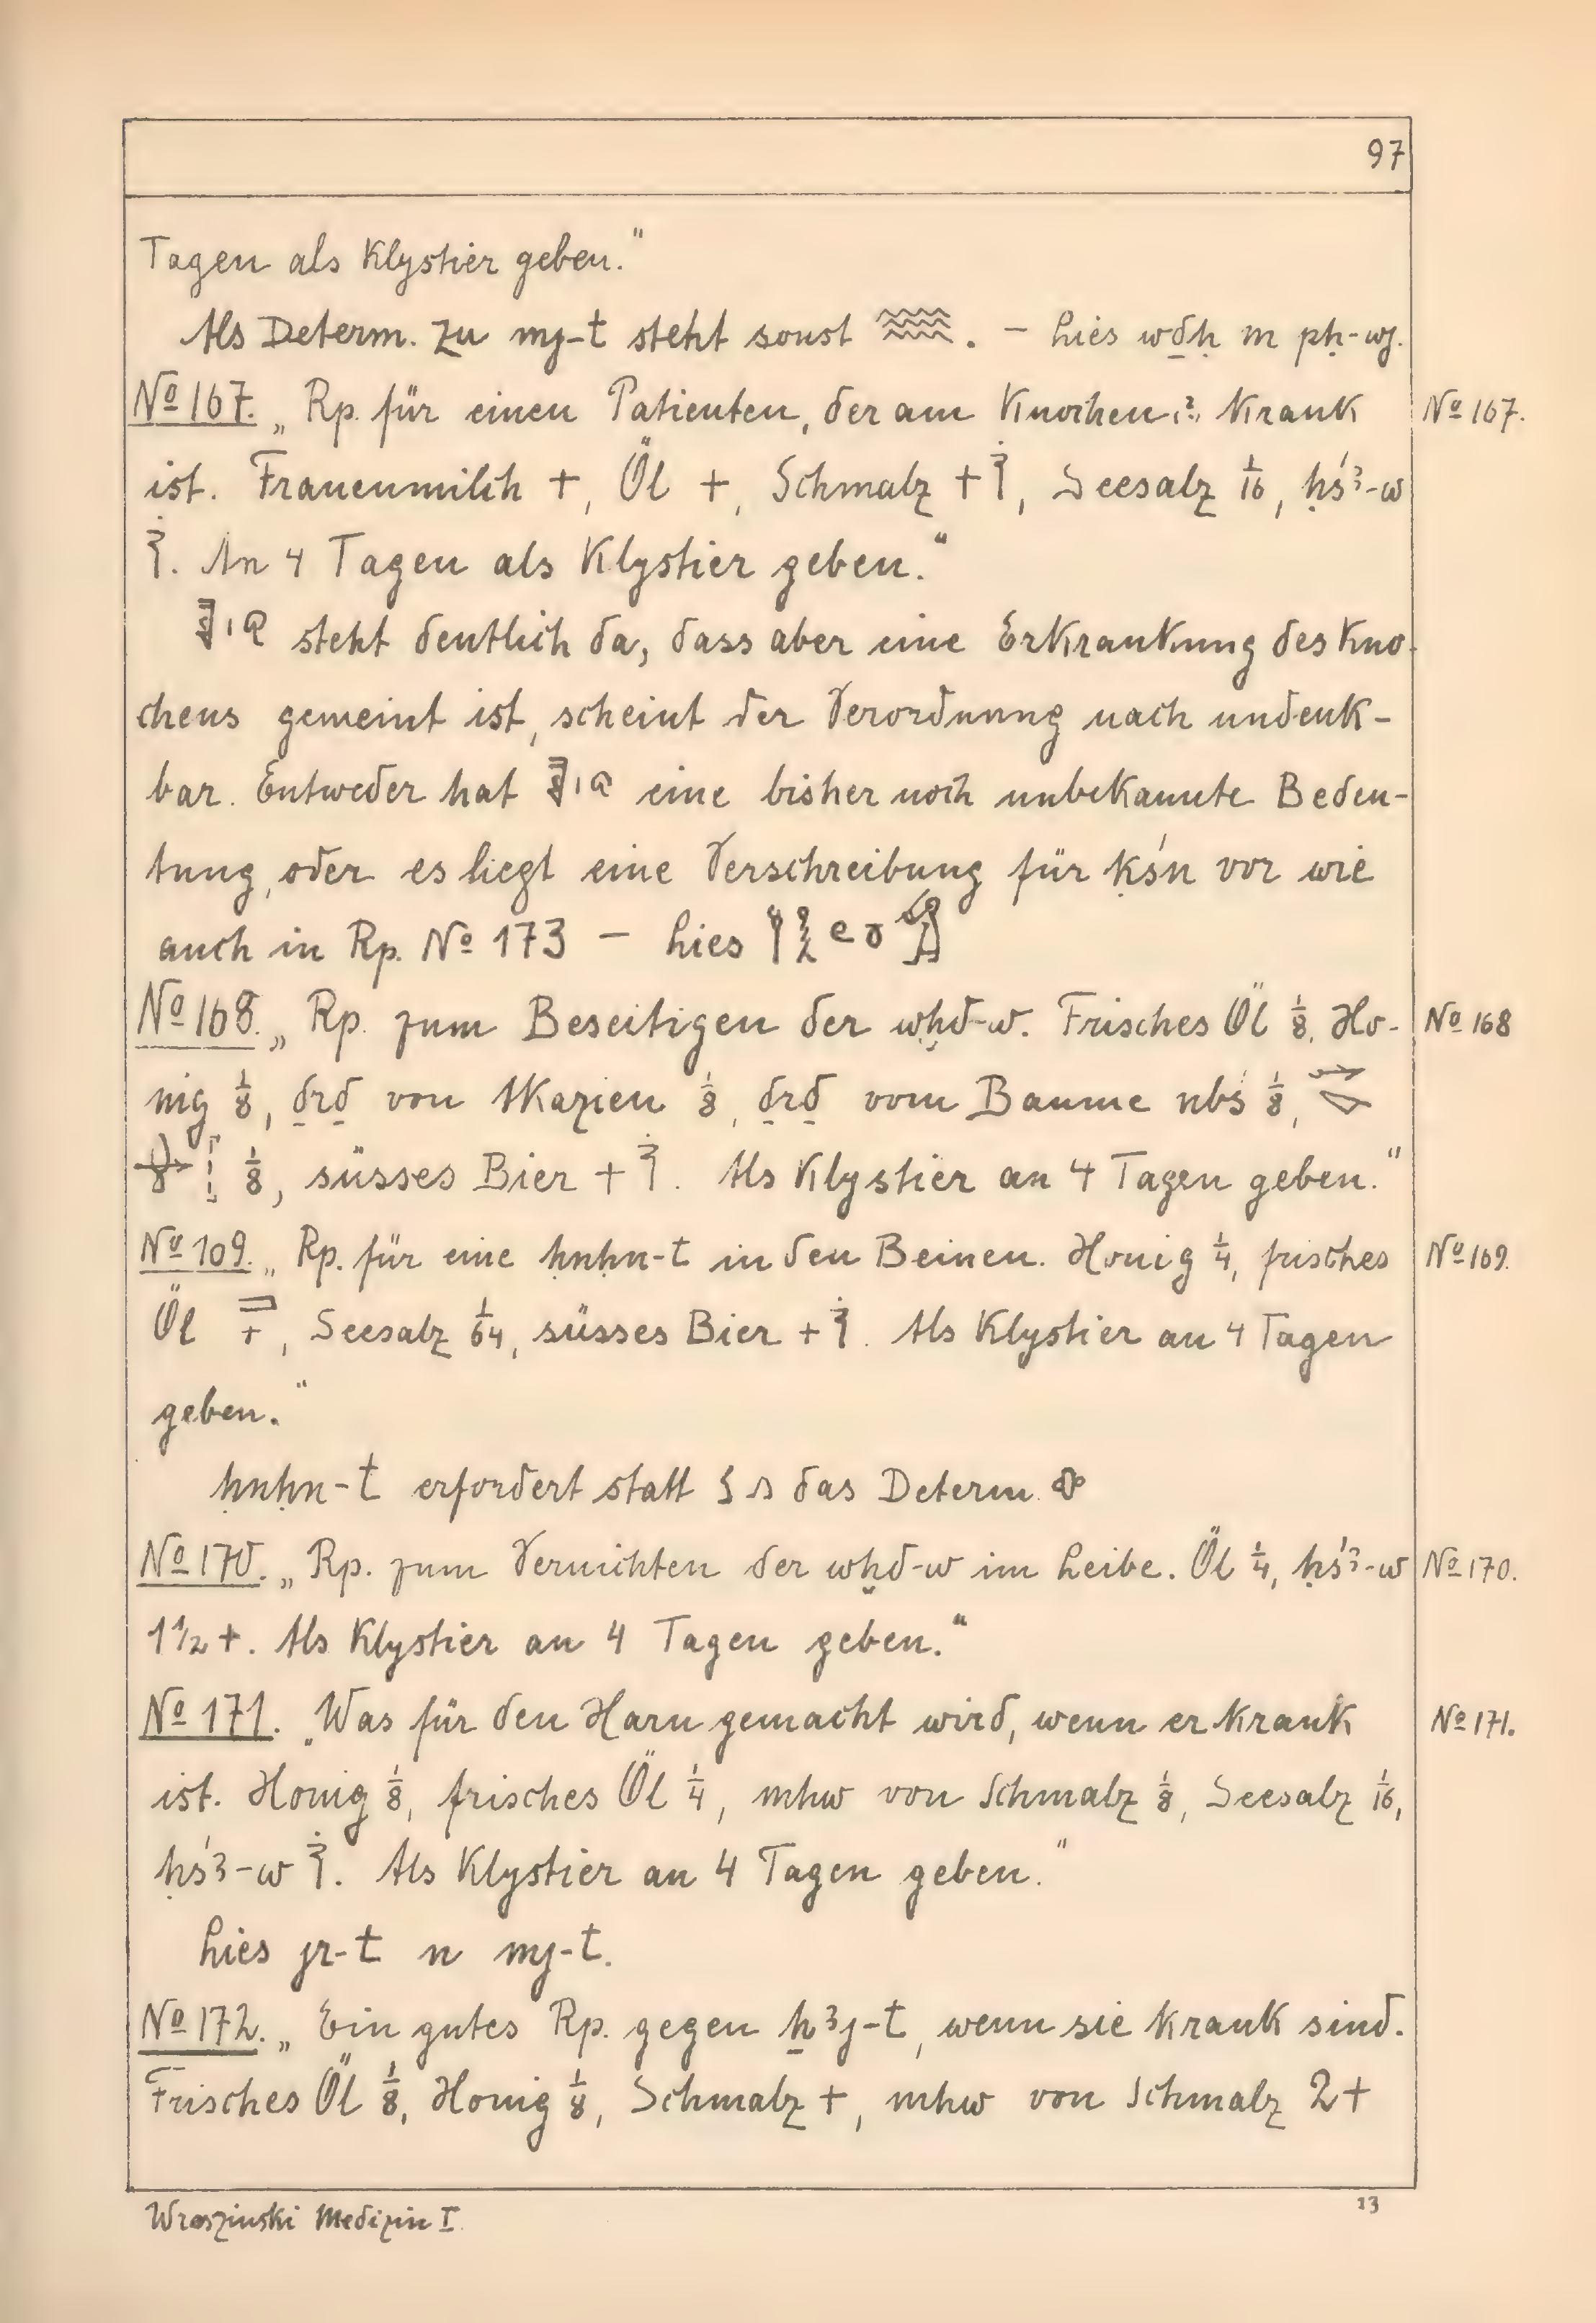 97
Tagen als Klystier geben."
Als Determ. zu mj-t steht sonst 𓈗. – Lies wdḥ m pḥ-wj.
No 167. „Rp. für einen Patienten, der am Knochen(?) krank No 167.
ist. Frauenmilch +, Öl +, Schmalz +, Seesalz 1/16, ḥś3-w
. An 4 Tagen als Klystier geben."
steht deutlich da, dass aber eine Erkrankung des Kno-
chens gemeint ist, scheint der Verordnung nach undenk-
bar. Entweder hat eine bisher noch unbekannte Bedeu-
tung, oder es liegt eine Verschreibung für ḳśn vor wie
auch in Rp. No 173 – Lies
No 168. „Rp. zum Beseitigen der wḫd-w. Frisches Öl 1/8, Ho- No 168
nig 1/8, ḏrḏ von Akazien 1/8, ḏrḏ vom Baume nbś 1/8,
1/8, süsses Bier +. Als Klystier an 4 Tagen geben."
No 169. „Rp. für eine ḥnḥn-t in den Beinen. Honig 1/4, frisches No 169.
Öl, Seesalz 1/64, süsses Bier +. Als Klystier an 4 Tagen
geben."
ḥnḥn-t erfordert statt das Determ.
No 170. „Rp. zum Vernichten der wḫd-w im Leibe. Öl 1/4, ḥś3-w No 170.
1 1/2 +. Als Klystier an 4 Tagen geben."
No 171. „Was für den Harn gemacht wird, wenn er krank No 171.
ist. Honig 1/8, frisches Öl 1/4, mhw von Schmalz 1/8, Seesalz 1/16,
ḥś3-w. Als Klystier an 4 Tagen geben."
Lies jr-t n mj-t.
No 172. „Ein gutes Rp. gegen ẖ3j-t, wenn sie krank sind.
Frisches Öl 1/8, Honig 1/8, Schmalz +, mhw von Schmalz 2+
Wreszinski Medizin I. 13